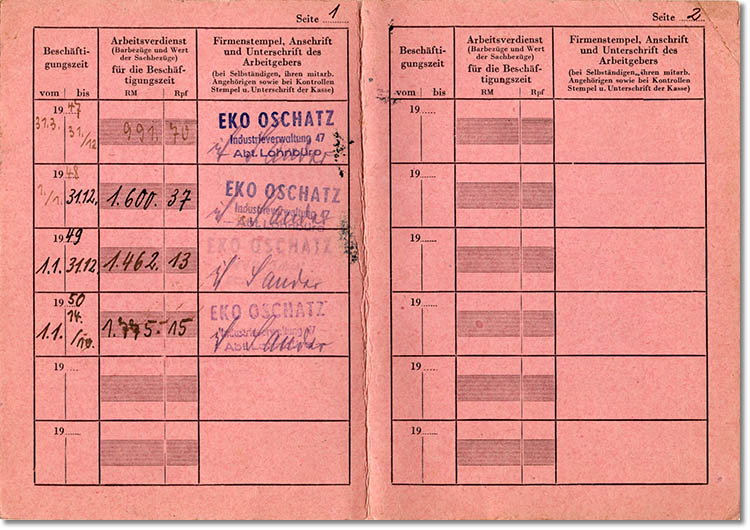 Seite 1
Beschäfti-
gungszeit
vom bis
Arbeitsverdienst
(Barbezüge und Wert
der Sachbezüge)
für die Beschäf-
tigungszeit
RM Rpf
Firmenstempel, Anschrift
und Unterschrift des
Arbeitgebers
(bei Selbständigen, ihren mitarb.
Angehörigen sowie bei Kontrollen
Stempel u. Unterschrift der Kasse)
1947
31.3. 31./12 991. 70
EKO OSCHATZ
Industrieverwaltung 47
Abt. Lohnbüro
1948
1./1. 31.12. 1.600. 37
EKO OSCHATZ
Industrieverwaltung 47
i/V Sander
1949
1.1. 31.12. 1.462. 13
EKO OSCHATZ
i/V Sander
1950
1.1. 14./10. 1.775.- 15
EKO OSCHATZ
Industrieverwaltung 47
i/V Sander
19......
19......
Seite 2
Beschäfti-
gungszeit
vom bis
Arbeitsverdienst
(Barbezüge und Wert
der Sachbezüge)
für die Beschäf-
tigungszeit
RM Rpf
Firmenstempel, Anschrift
und Unterschrift des
Arbeitgebers
(bei Selbständigen, ihren mitarb.
Angehörigen sowie bei Kontrollen
Stempel u. Unterschrift der Kasse)
19......
19......
19......
19......
19......
19......